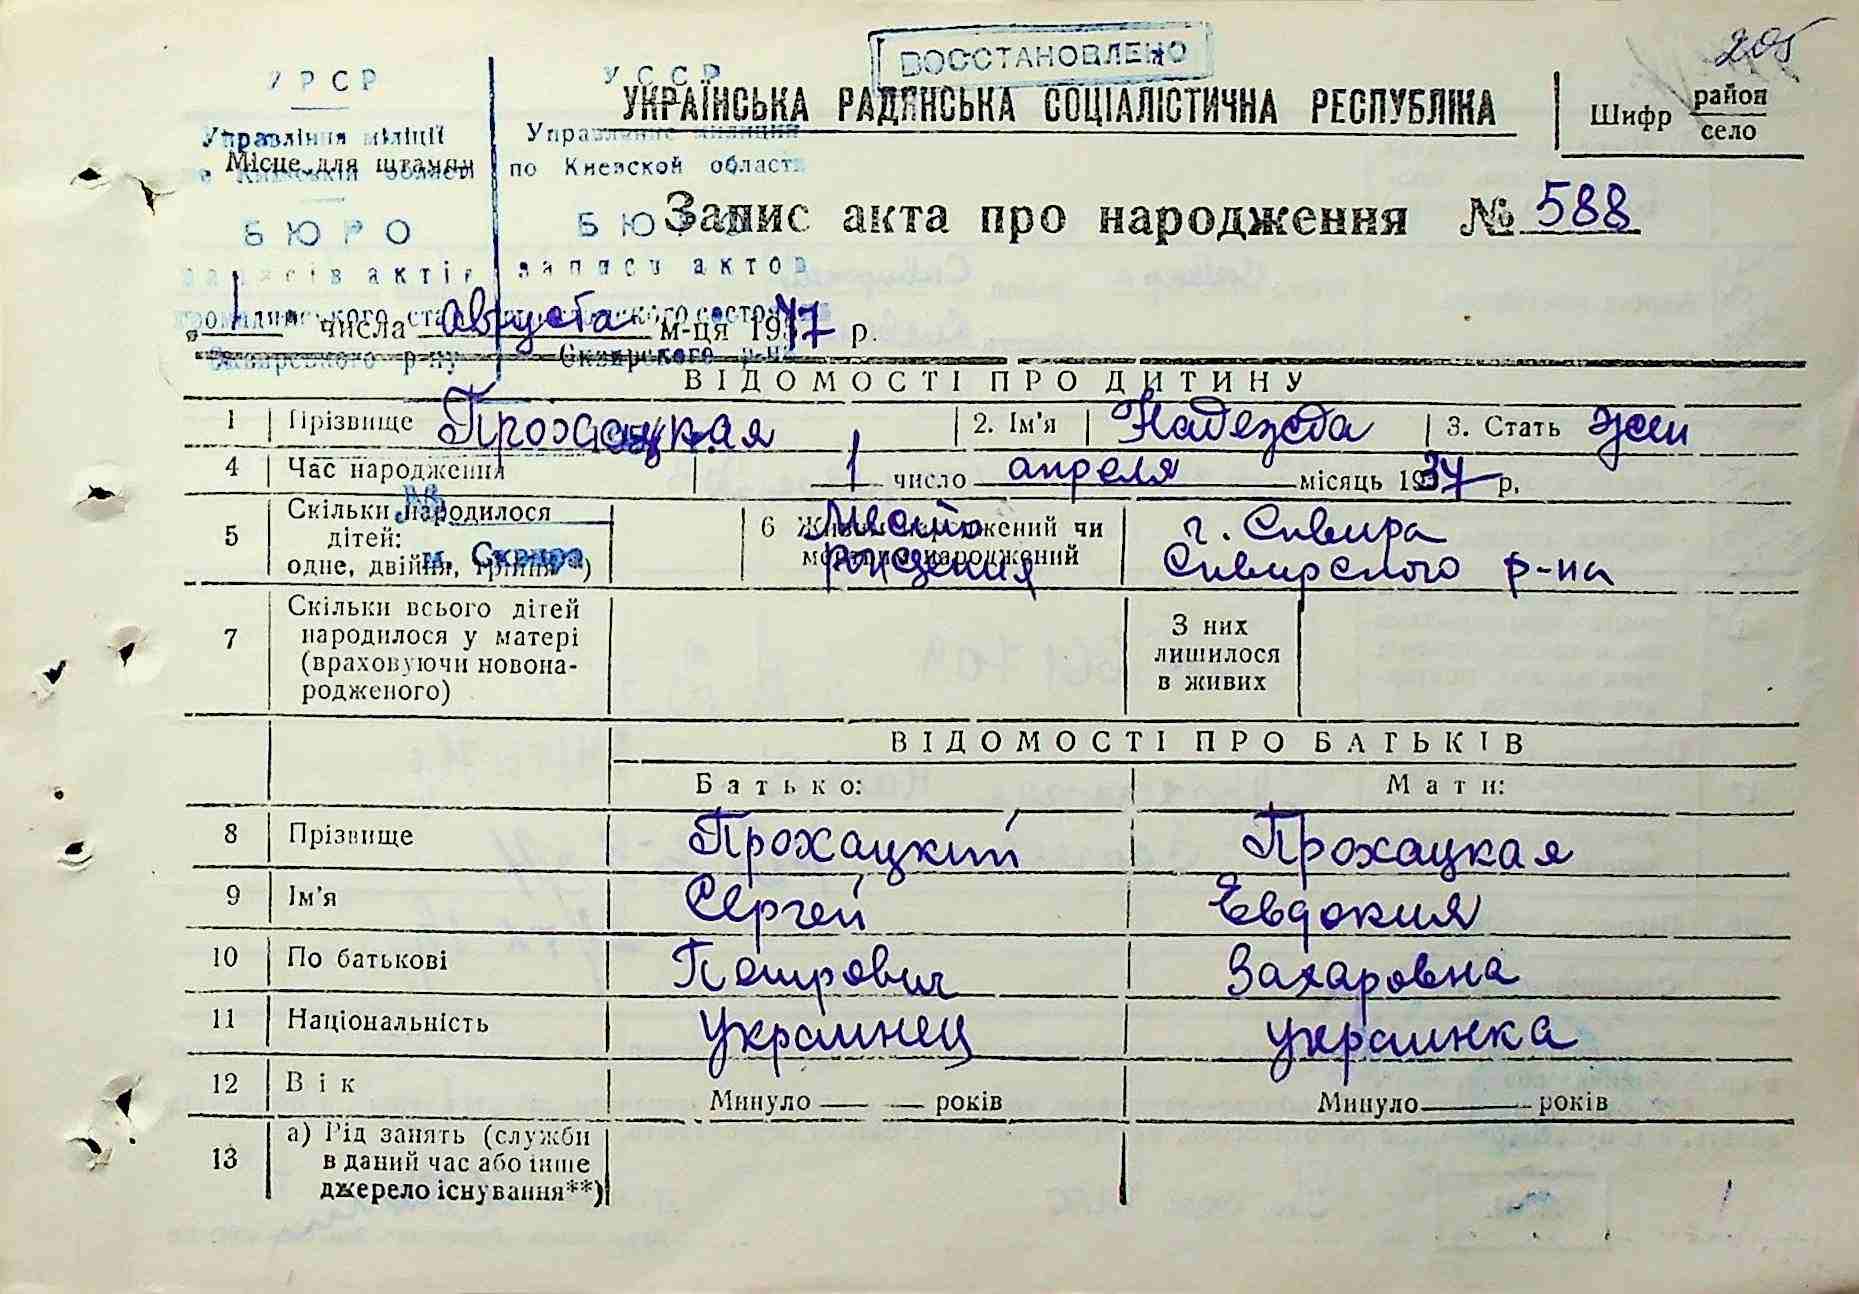 ВОССТАНОВЛЕНО
205
УРСР
УССР
УКРАЇНСЬКА РАДЯНСЬКА СОЦІАЛІСТИЧНА РЕСПУБЛІКА
Шифр район село
Управління міліції
Управление милиции
Місце для штампу
по Киевской области
БЮРО
БЮРО
Запис акта про народження № 588
записів актів
записи актов
„1 числа августа м-ця 1947 р.
Сквирського р-ну
Сквирского р-на
ВІДОМОСТІ ПРО ДИТИНУ
1 Прізвище Прохацкая 2. Ім'я Надежда 3. Стать жен
4 Час народження 1 число апреля місяць 1937 р.
5 Скільки народилося дітей: одне, двійня, трійня*)
м. Сквира
6 Живонароджений чи мертвонароджений
Место рождения
г. Сквира
Сквирского р-на
7 Скільки всього дітей народилося у матері (враховуючи новонародженого)
З них лишилося в живих
ВІДОМОСТІ ПРО БАТЬКІВ
Батько: Мати:
8 Прізвище Прохацкий Прохацкая
9 Ім'я Сергей Евдокия
10 По батькові Петрович Захаровна
11 Національність украинец украинка
12 Вік Минуло — — років Минуло — років
13 а) Рід занять (служби
в даний час або інше
джерело існування**)